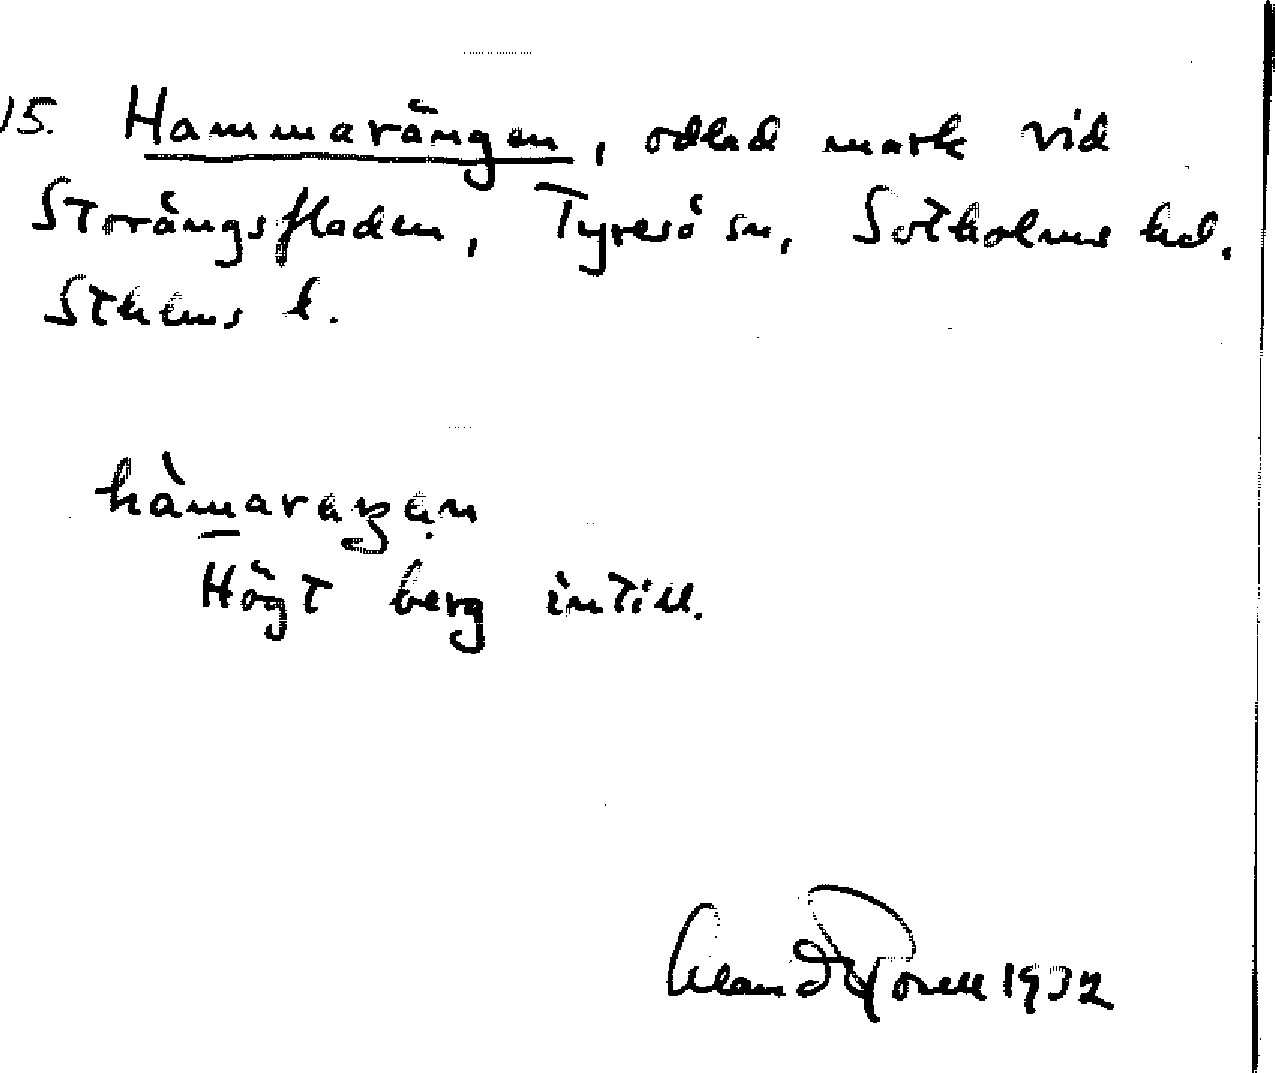 15. Hammarängen, odlad mark vid
Storängsfladen, Tyresö sn, Sotholms hd.
Sthlms l.
hàmaraŋən
Högt berg intill.
1932